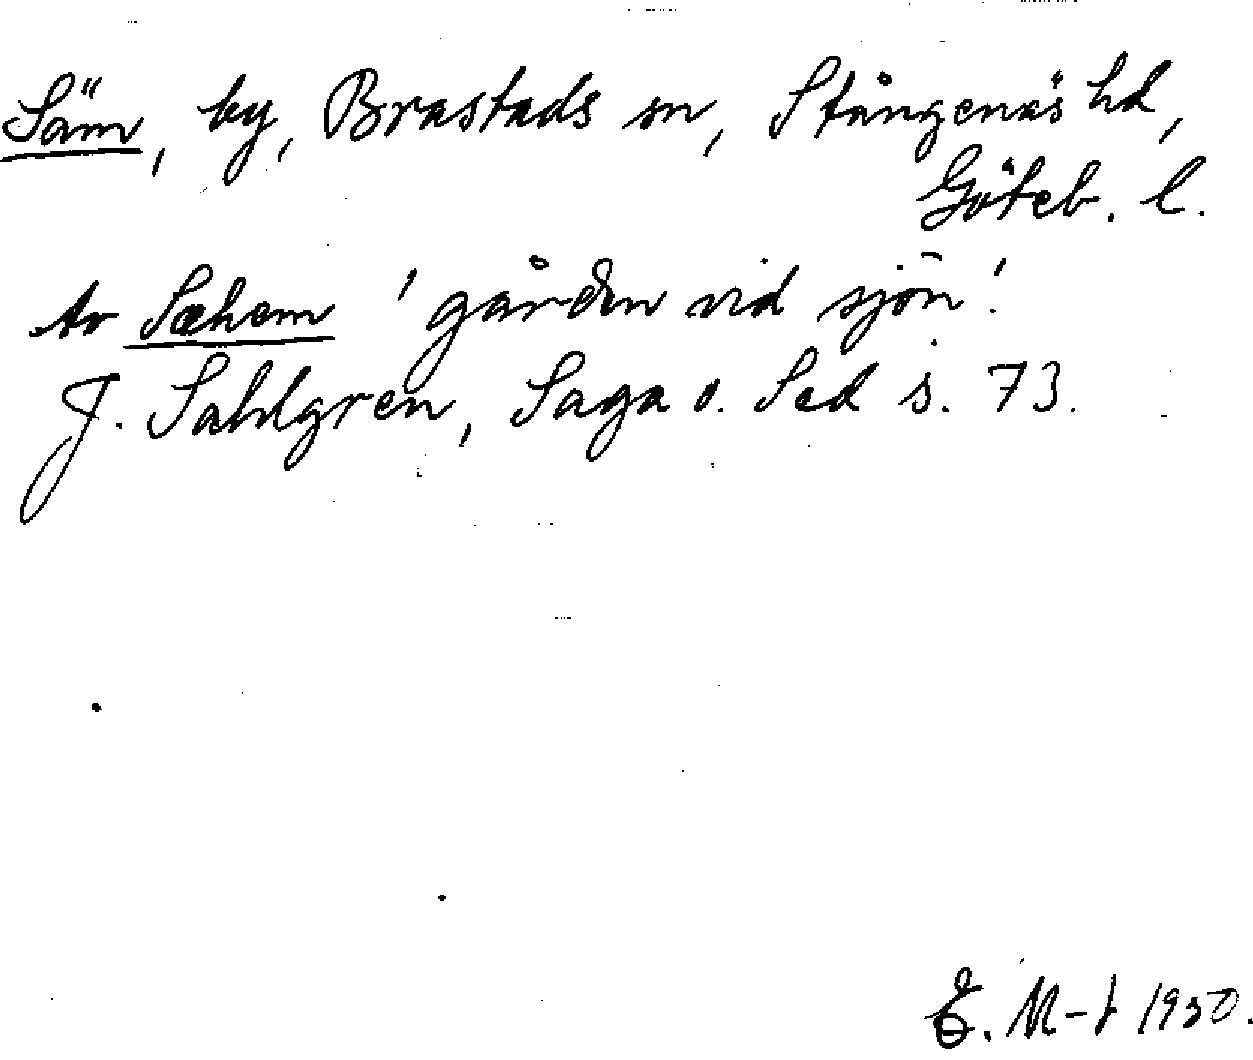 Säm, by, Brastads sn, Stångenäs hd,
Göteb. l.
Av Sæhem 'gården vid sjön'.
J. Sahlgren, Saga o. Sed s. 73.
E. M-t 1930.